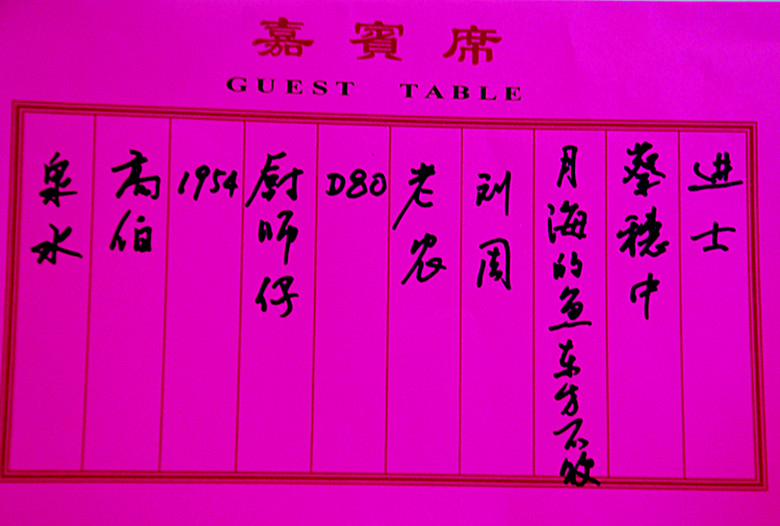 嘉賓席
GUEST TABLE
进士
蔡穗中
月海的鱼东方不败
刘周
老农
D80
厨师仔
1954
高伯
泉水